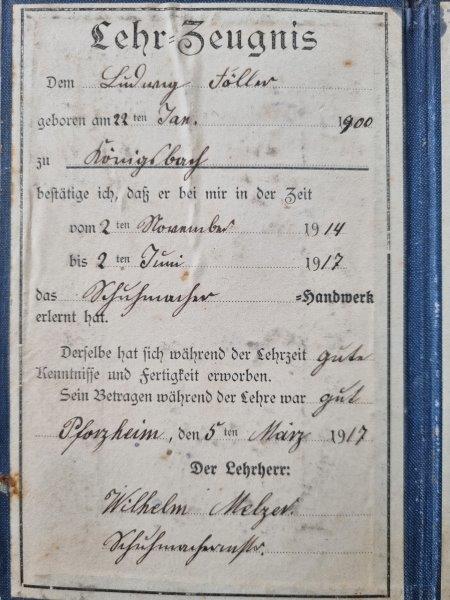 Lehr-Zeugnis
Dem Ludwig Föller
geboren am 22 ten Jan. 1900
zu Königsbach
bestätige ich, daß er bei mir in der Zeit
vom 2 ten November 1914
bis 2 ten Juni 1917
das Schuhmacher =Handwerk
erlernt hat.
Derselbe hat sich während der Lehrzeit gute
Kenntnisse und Fertigkeit erworben.
Sein Betragen während der Lehre war gut
Pforzheim, den 5 ten März 1917
Der Lehrherr:
Wilhelm Melzer.
Schuhmachermstr.